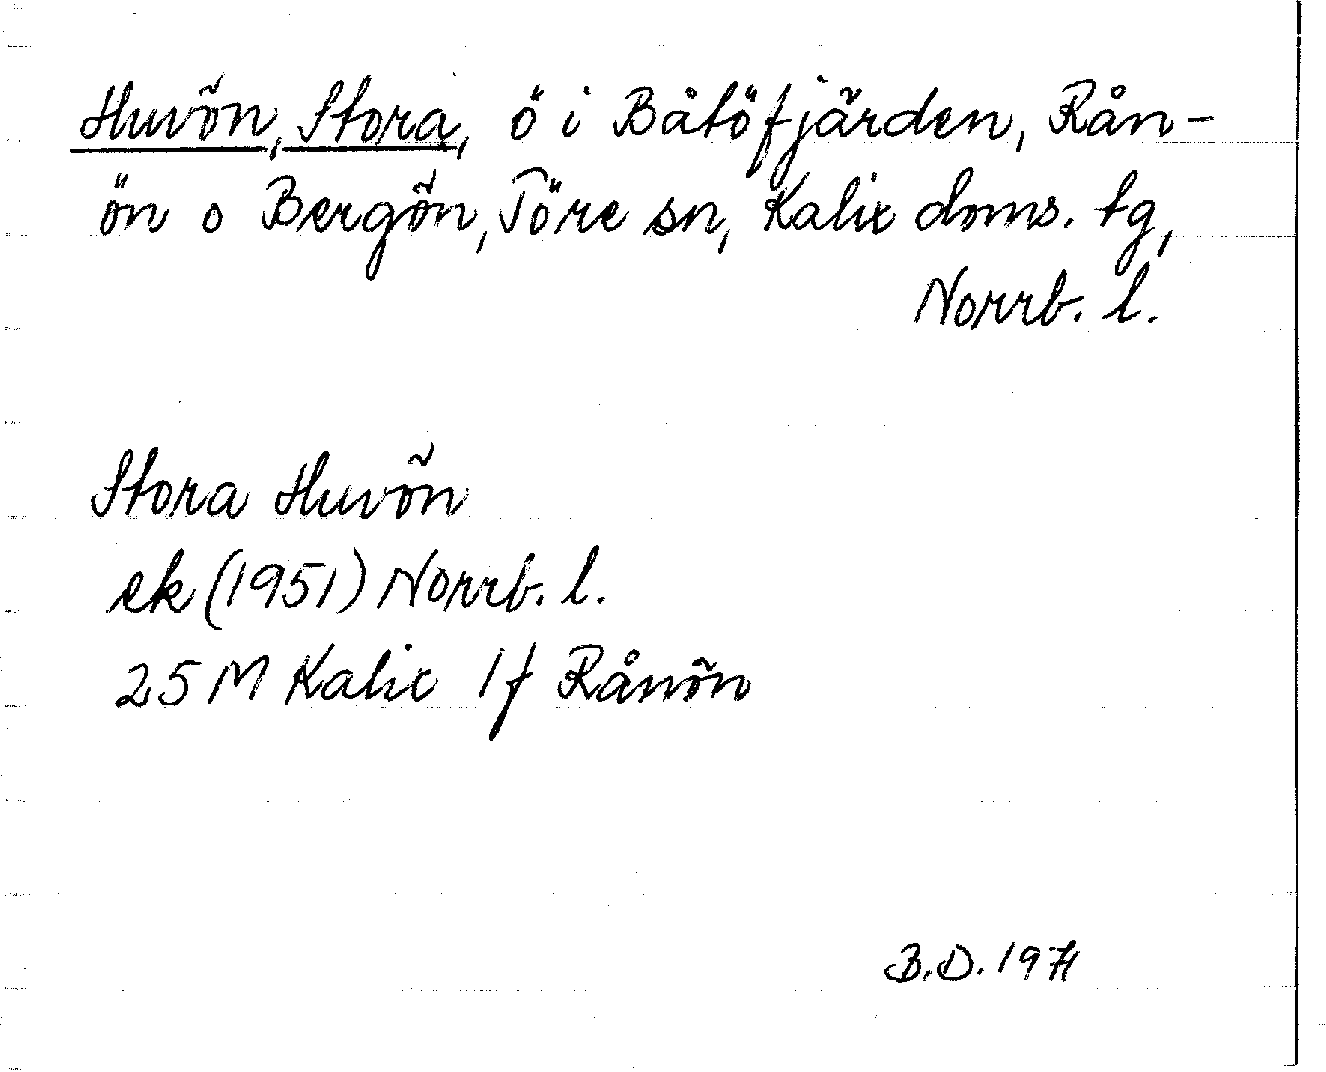 Huvön, Stora, ö i Båtöfjärden, Rån-
ön o Bergön, Töre sn, Kalix doms. tg,
Norrb. l.
Stora Huvön
ek (1951) Norrb. l.
25 M Kalix 1f Rånön
B.D. 1971